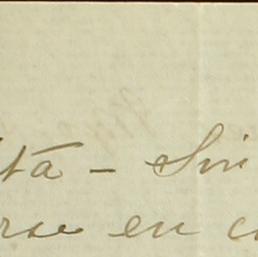 ita - Sin
rse en c